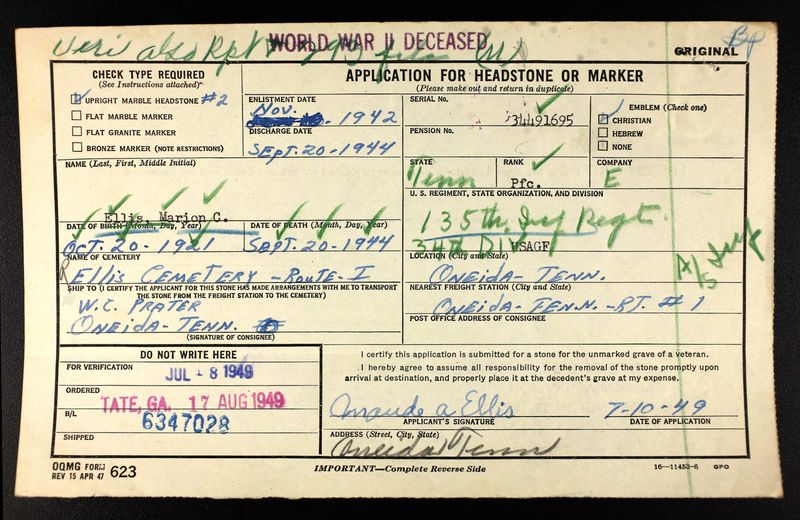 Veri also Rpt
WORLD WAR II DECEASED
ORIGINAL
CHECK TYPE REQUIRED
(See Instructions attached)
UPRIGHT MARBLE HEADSTONE #2
FLAT MARBLE MARKER
FLAT GRANITE MARKER
BRONZE MARKER (NOTE RESTRICTIONS)
APPLICATION FOR HEADSTONE OR MARKER
(Please make out and return in duplicate)
ENLISTMENT DATE
Nov. 1942
DISCHARGE DATE
SEPT. 20 - 1944
SERIAL No.
34491695
PENSION No.
EMBLEM (Check one)
CHRISTIAN
HEBREW
NONE
STATE
Tenn
RANK
Pfc.
COMPANY
E
NAME (Last, First, Middle Initial)
Ellis, Marion C.
U. S. REGIMENT, STATE ORGANIZATION, AND DIVISION
135th Inf Regt.
34th DIV
USAGF
DATE OF BIRTH (Month, Day, Year)
OCT. 20 - 1921
DATE OF DEATH (Month, Day, Year)
SEPT. 20 - 1944
NAME OF CEMETERY
ELLIS CEMETERY - ROUTE - I
LOCATION (City and State)
ONEIDA - TENN.
SHIP TO (I CERTIFY THE APPLICANT FOR THIS STONE HAS MADE ARRANGEMENTS WITH ME TO TRANSPORT
THE STONE FROM THE FREIGHT STATION TO THE CEMETERY)
W.C. PRATER
ONEIDA - TENN.
(SIGNATURE OF CONSIGNEE)
NEAREST FREIGHT STATION (City and State)
ONEIDA - TENN. - RT. # 1
POST OFFICE ADDRESS OF CONSIGNEE
DO NOT WRITE HERE
FOR VERIFICATION
JUL - 8 1949
ORDERED
TATE, GA. 17 AUG 1949
B/L
6347028
SHIPPED
I certify this application is submitted for a stone for the unmarked grave of a veteran.
I hereby agree to assume all responsibility for the removal of the stone promptly upon
arrival at destination, and properly place it at the decedent's grave at my expense.
Maude A Ellis
7-10-49
APPLICANT'S SIGNATURE
DATE OF APPLICATION
ADDRESS (Street, City, State)
Oneida Tenn
OQMG FORM
REV 15 APR 47
623
IMPORTANT—Complete Reverse Side
16—11453-6 GPO